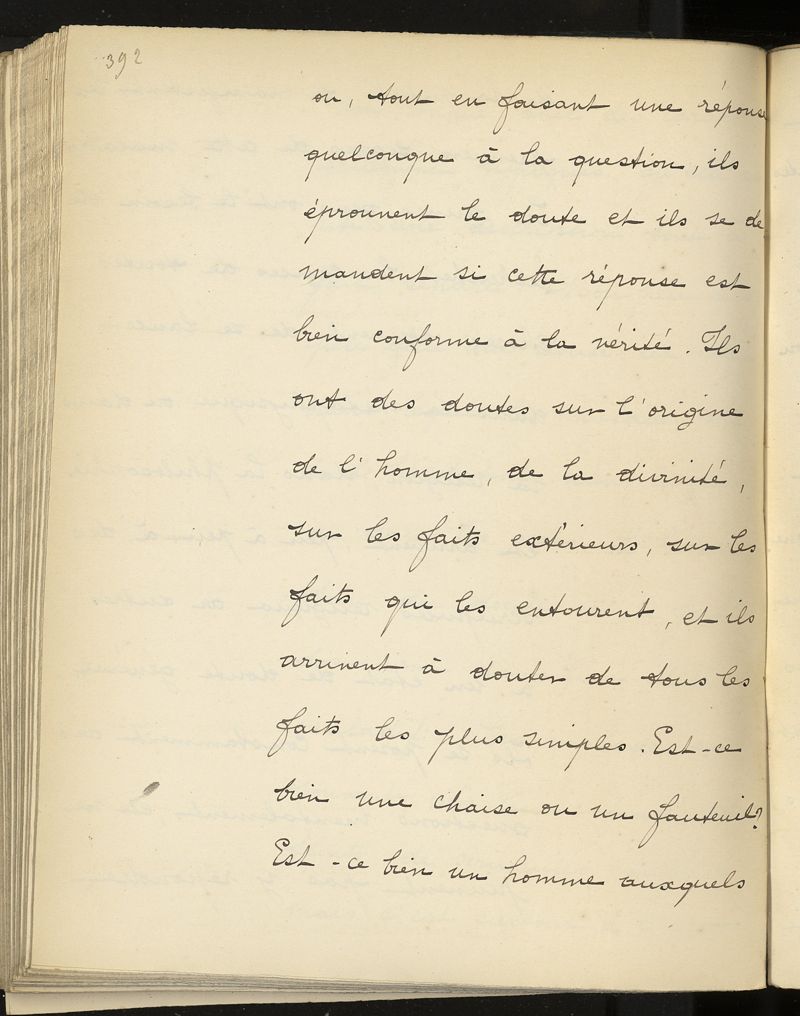 392
ou, tout en faisant une réponse
quelconque à la question, ils
éprouvent le doute et ils se de
mandent si cette réponse est
bien conforme à la vérité. Ils
ont des doutes sur l'origine
de l'homme, de la divinité,
sur les faits extérieurs, sur les
faits qui les entourent, et ils
arrivent à douter de tous les
faits les plus simples. Est-ce
bien une chaise ou un fauteuil?
Est-ce bien un homme auxquels